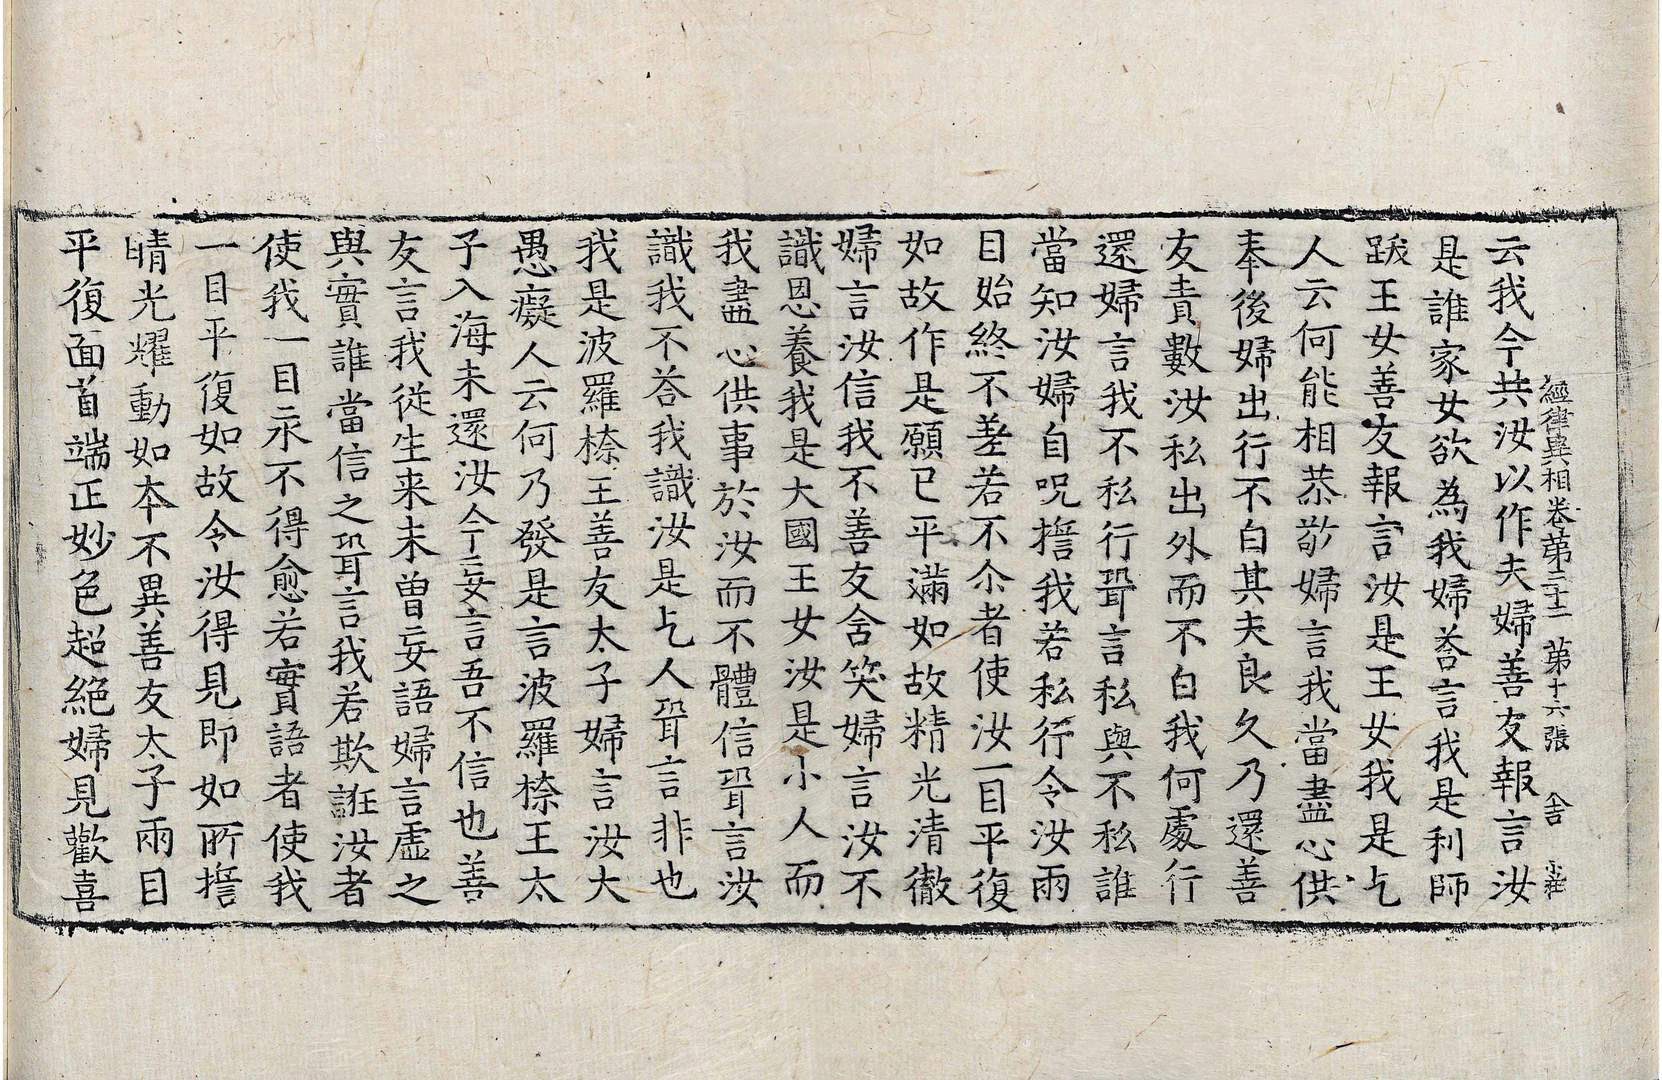 經律異相卷第三十二 第十六張 舎 小莊
云我今共汝以作夫婦善友報言汝
是誰家女欲為我婦荅言我是利師
跋王女善友報言汝是王女我是乞
人云何能相恭敬婦言我當盡心供
奉後婦出行不白其夫良久乃還善
友責數汝私出外而不白我何處行
還婦言我不私行聟言私與不私誰
當知汝婦自呪擔我若私行令汝兩
目始終不差若不尒者使汝一目平復
如故作是願已平滿如故精光清徹
婦言汝信我不善友含笑婦言汝不
識恩養我是大國王女汝是小人而
我盡心供事於汝而不體信聟言汝
識我不荅我識汝是乞人聟言非也
我是波羅㮈王善友太子婦言汝大
愚癡人云何乃發是言波羅㮈王太
子入海未還汝今妄言吾不信也善
友言我從生来未曽妄語婦言虛之
與實誰當信之聟言我若欺誑汝者
使我一目永不得愈若實語者使我
一目平復如故令汝得見即如所擔
晴光耀動如本不異善友太子兩目
平復面首端正妙色超絕婦見歡喜